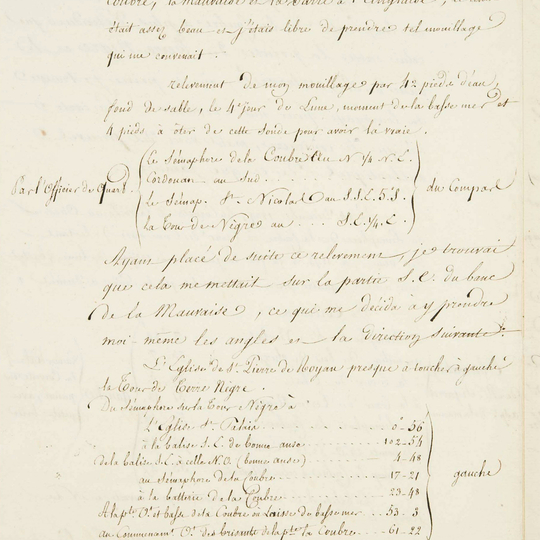 Coubre, la mauvaise et la Barre à l'Anglaise,
était assez beau et j'étais libre de prendre tel mouillage
qui me convenait.
relevement de mon mouillage par 42 pieds d'eau
fond de sable, le 4e jour de Lune, moment de la basse mer et
4 pieds à ôter de cette sonde pour avoir la vraie.
Par l'Officier de Quart.
Le Sémaphore de la Coubre au N ¼ N.E.
Cordouan au Sud
le Sémap. St. Nicolas au S.S.E. 5° S.
la Tour de Nègre au ... S.E. ¼ E.
du Compas
Ayant placé de suite ce relevement, je trouvai
que cela me mettait sur la partie S.E. du banc
de la Mauvaise, ce qui me décida à y prendre
moi-même les angles et la direction suivante.
L'Eglise de St. Pierre de Royan presque à toucher à gauche
la Tour de Terre Nigre.
Du Sémaphore sur la Tour Nègre à
L'Eglise St. Palais ... 0 - 56
à la balise S.E. de bonne anse ... 102 - 54
de la balise S.E. à celle N.O. (bonne anse) ... 4 - 48
au sémaphore de la Coubre ... 17 - 21
à la batterie de la Coubre ... 23 - 43
A la pte. O. et basse de la Coubre ou laisse de basse mer ... 53 - 3
au Commencemt. O. des brisants de la pte. la Coubre ... 61 - 22
gauche